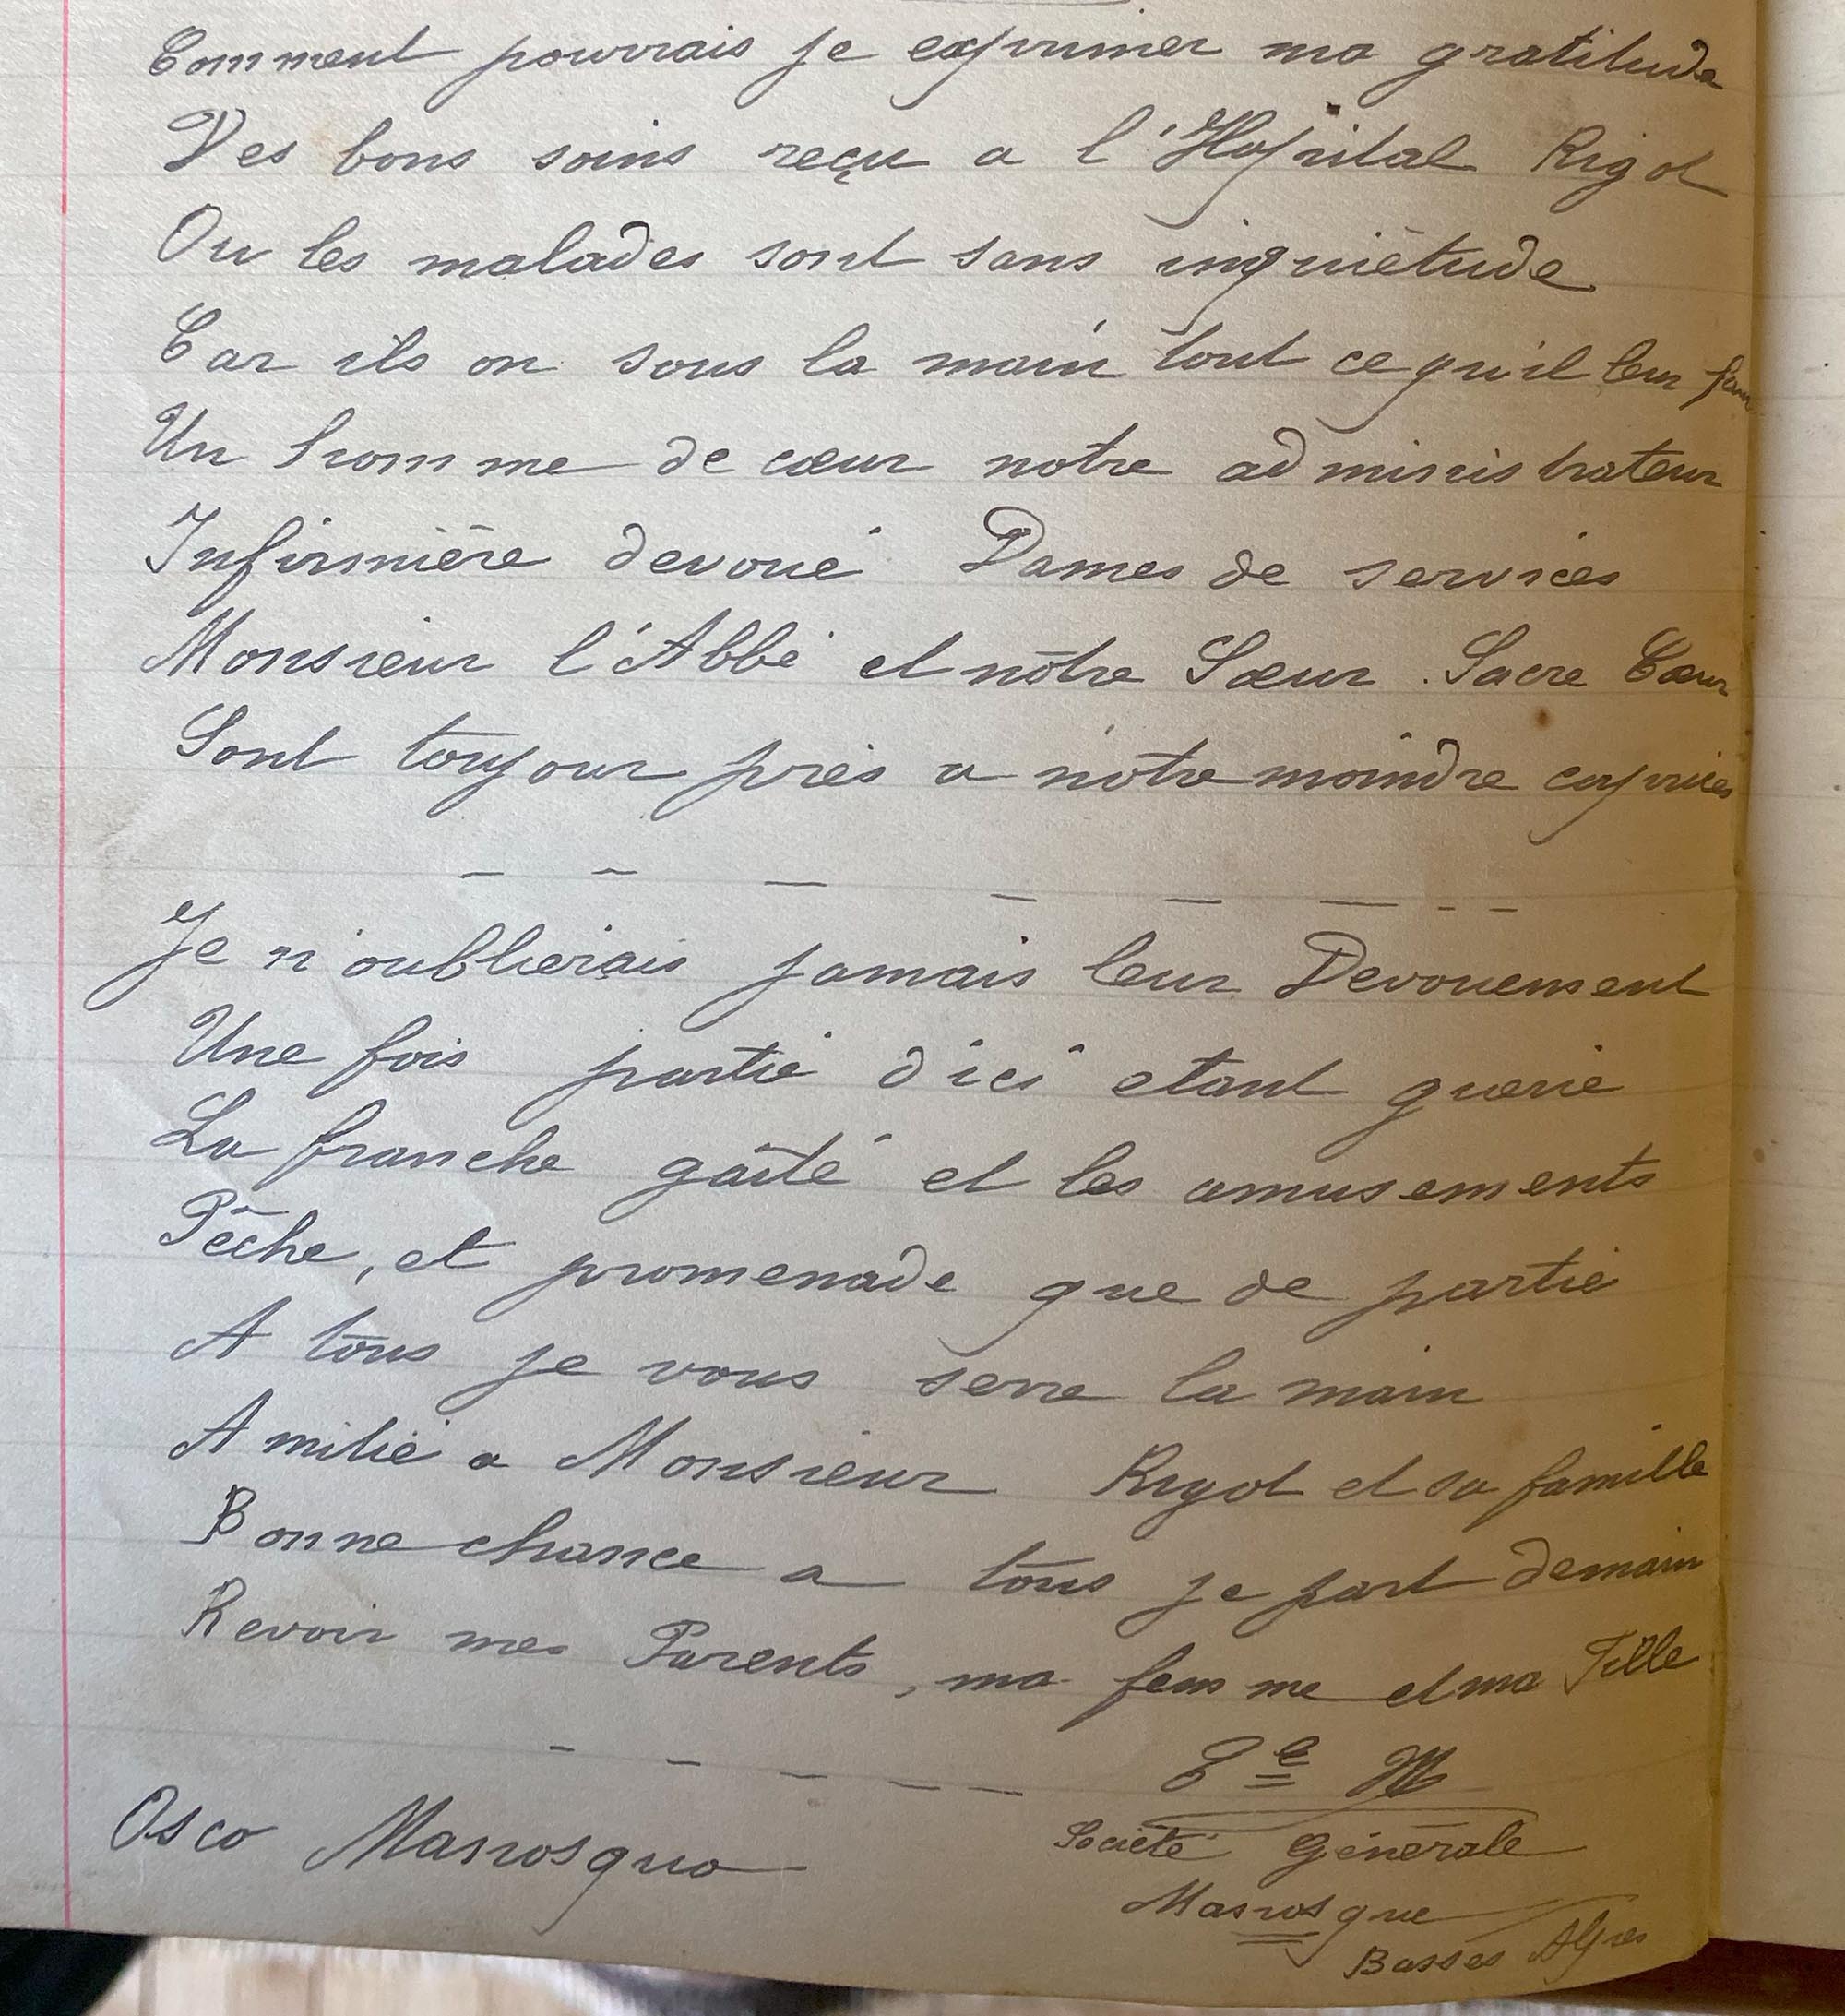 Comment pourrais je exprimer ma gratitude
Des bons soins reçu a l'Hopital Rigot
Ou les malades sont sans inquiétude
Car ils on sous la main tout ce qu'il leur faut
Un homme de cœur notre administrateur
Infirmière devoué Dames de services
Monsieur l'Abbé et notre Sœur Sacre Cœur
Sont toujour près a notre moindre caprices
Je n'oublierais jamais leur Devouement
Une fois partie d'ici etant guerie
La franche gaîté et les amusements
Pêche, et promenade que de partie
A tous je vous serre la main
Amitié a Monsieur Rigot et sa famille
Bonne chance a tous je part demain
Revoir mes Parents, ma femme et ma Fille
Société Générale
Osco Manosquo
Manosque
Basses Alpes